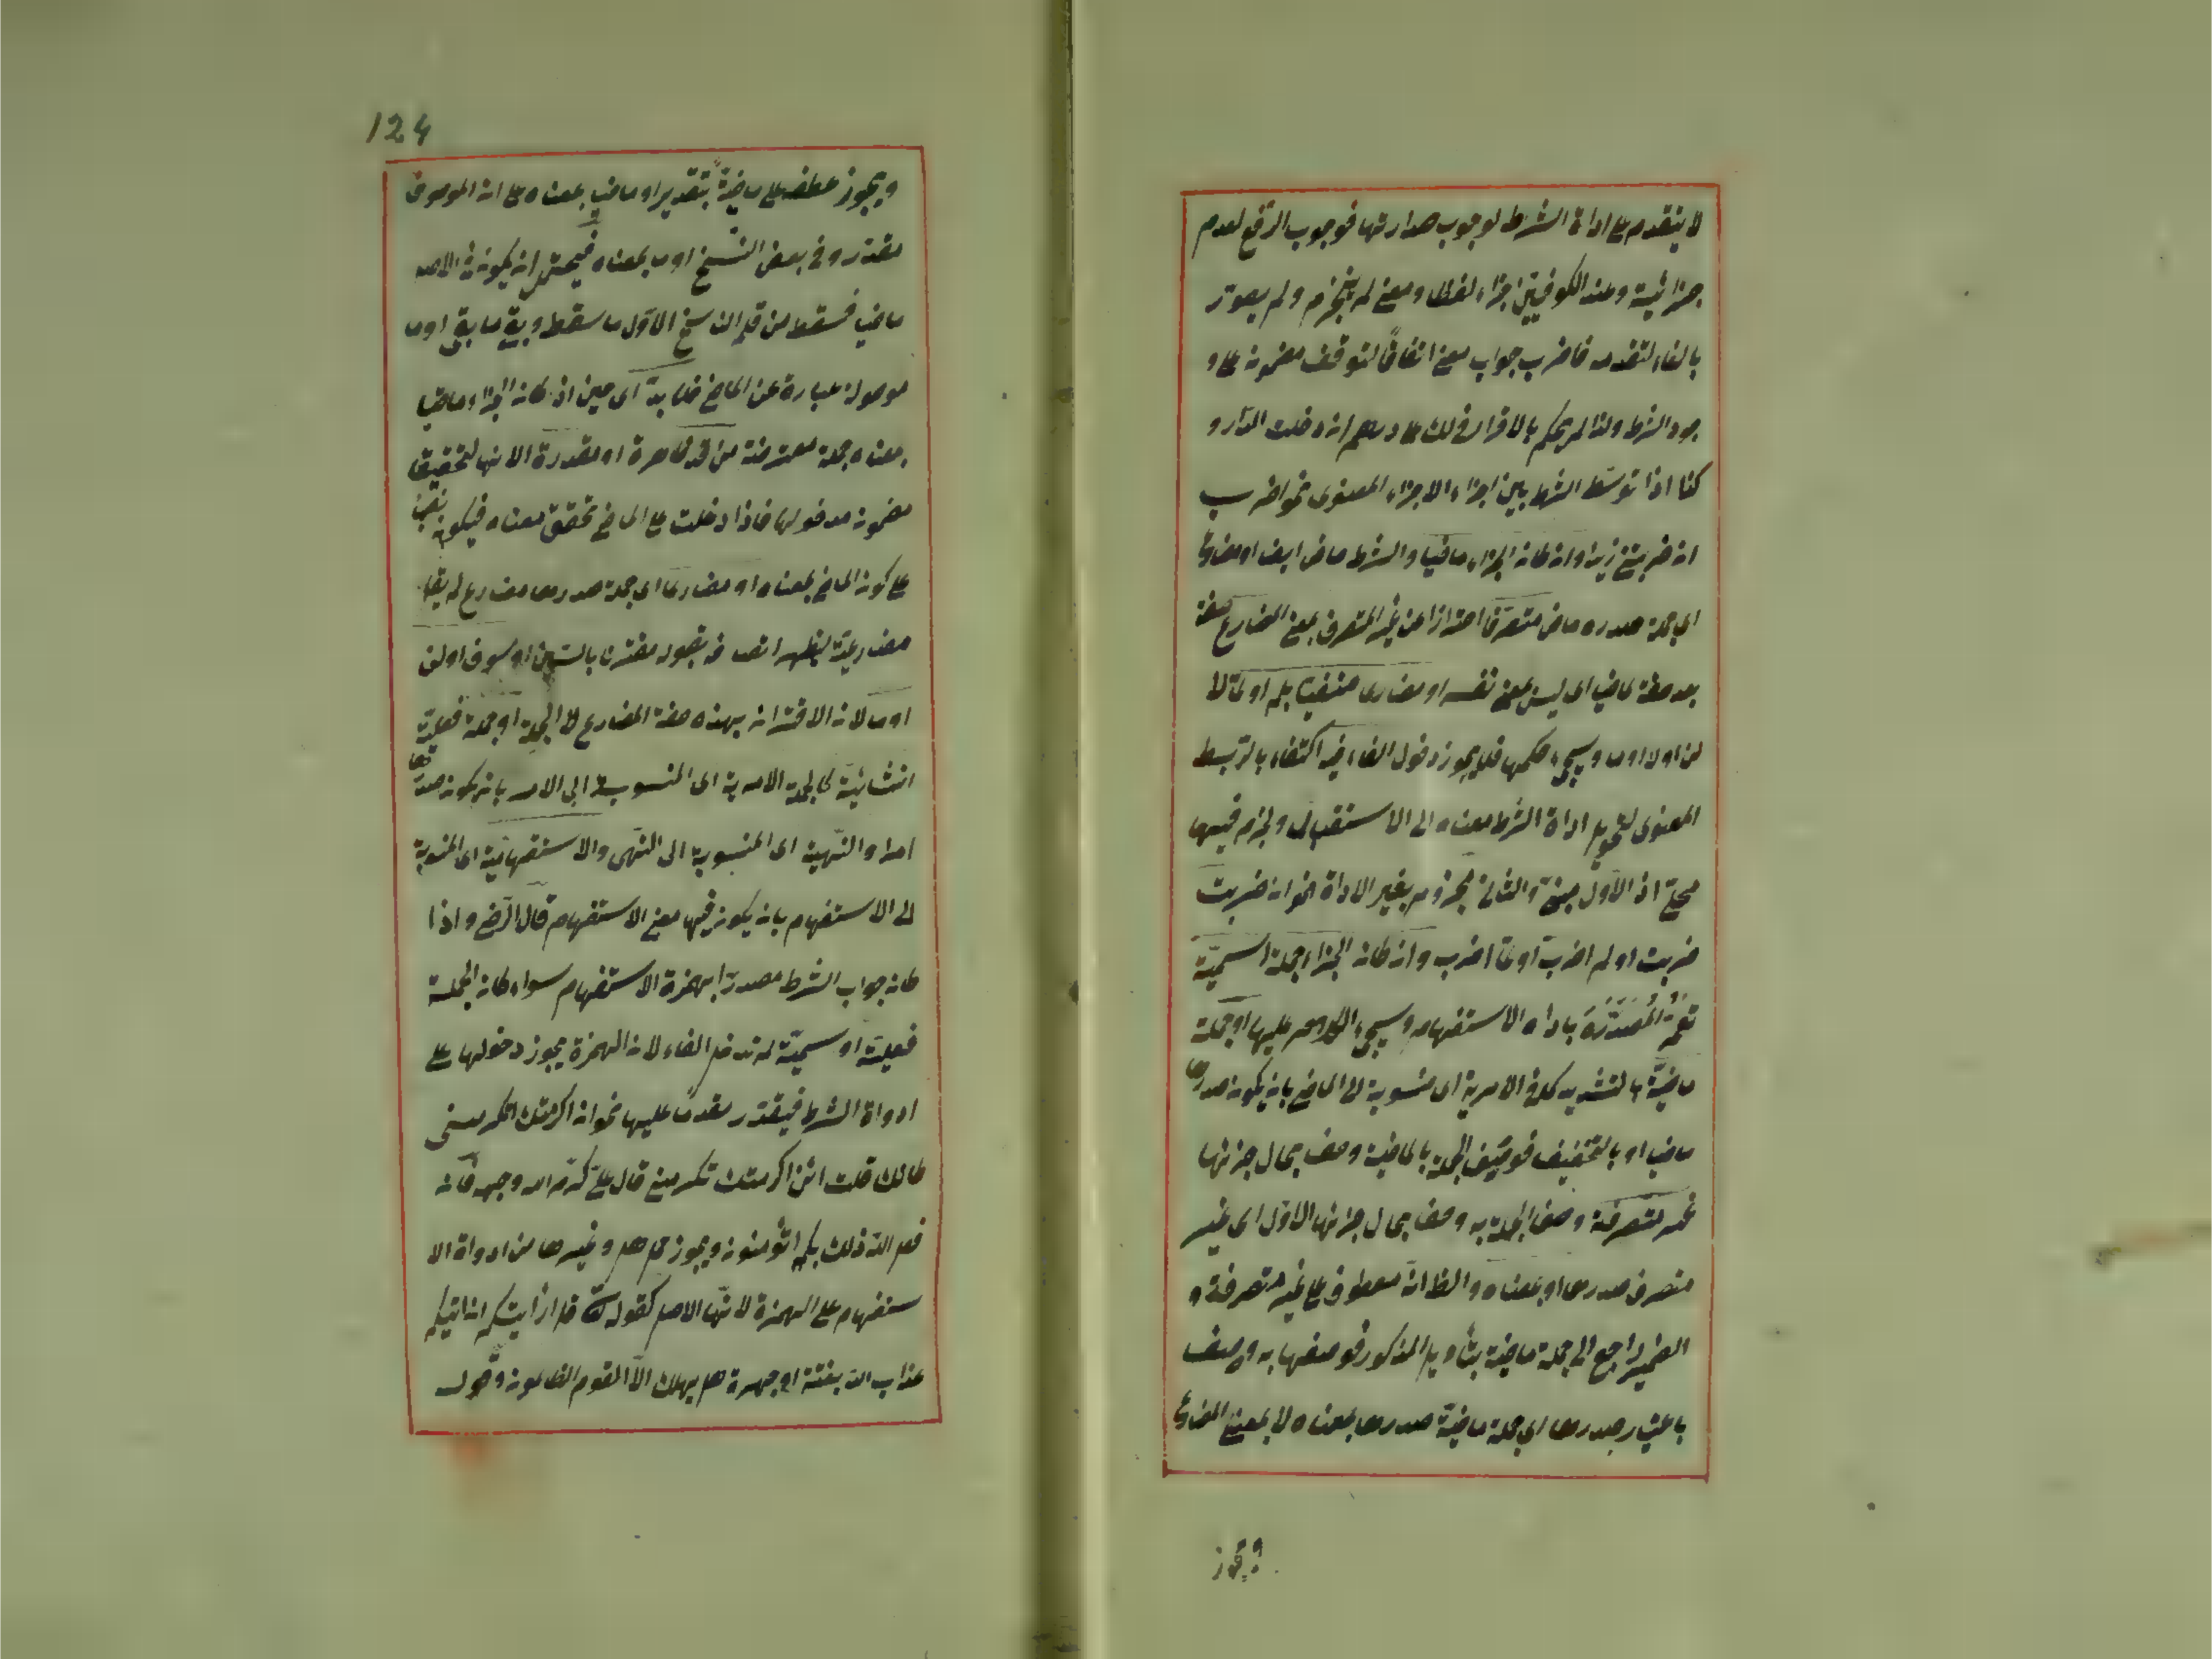 لا يتقدم على اداة الشرط لوجوب صدارتها فوجوب الرفع لعدم
جزائيته وعند الكوفيين جزاء لفظا ومعنى لم ينجزم ولم يصدر
بالفاء لتقدمه فاضرب جواب معنى اتفاقا لتوقف مضمونه على و
جود الشرط ولذا لم يحكم بالاقرار في لك على درهم ان دخلت الدار و
كذا اذا توسط الشرط بين اجزاء الاجزاء المعنوى نحو اضرب
ان ضربتنى زيدا وان كان الجزاء ماضيا والشرط ماض ايضا او مضارع
اى جملة صدره ماض متصرفا احترازا عن غير المتصرف بمعنى المضارع صفة
بعد صفة لماضيا اى ليس بمعنى نفسه او مضارعا منفيا بلم او لما لا
لن او لا او ما وسيجئ حكمها فلا يجوز دخول الفاء فيه اكتفاء بالربط
المعنوى لتحويل اداة الشرط معناه الى الاستقبال وجزم فيهما
محلا اذ الاول مبنى والثانى مجزوم بغير الاداة نحو ان ضربت
ضربت او لم اضرب او لما اضرب وان كان الجزاء جملة اسمية
المصدرة باداة الاستفهام وسيجئ الكلام عليها او جملة
ماضية بالتشديد كذا في الامرية اى منسوبة الى الماضى بان يكون صدرها
ماضيا او بالتخفيف فوصف الجملة بالماضية وصف بحال جزئها
غير متصرفة وصف الجملة به وصف بحال جزئها الاول اى غير
متصرف صدرها او بمعناه والظ انه معطوف على غير متصرفة و
الضمير راجع الى جملة ماضية بتأويل المذكور فوصفها به وصف
باعتبار صدرها اى جملة ماضية صدرها بمعناه لا بمعنى المضارع
ويجوز
124
ويجوز عطفه على ماضية بتقدير او ماضيا بمعناه على ان الموصوف
مقدر وفى بعض النسخ او ما بمعناه فيحتمل ان يكون في الاصل
ماضيا فسقط من قلم الناسخ الاول ما سقط وبقى ما بقى او ما
موصولة عبارة عن الماضى فلا بد اى حين اذ كان الجزاء ماضيا
بمعناه جملة معترضة من قد ظاهرة او مقدرة لانها لتحقيق
مضمون مدخولها فاذا دخلت على الماضى تحقق معناه فيكون نصا
على كون الماضى بمعناه او مضارعا اى جملة صدرها مضارع لم يقل
مضارعية ليظهر اتصافه بقوله مقترنا بالسين او سوف او لن
او ما لان الاقتران بهذه صفة المضارع لا الجملة او جملة فعلية
انشائية كالجملة الامرية اى المنسوبة الى الامر بان يكون صدرها
امرا والنهية اى المنسوبة الى النهى والاستفهامية اى المنسوبة
الى الاستفهام بان يكون فيها معنى الاستفهام قال الرضى واذا
كان جواب الشرط مصدرا بهمزة الاستفهام سواء كان الجملة
فعلية او اسمية لم تدخل الفاء لان الهمزة يجوز دخولها على
ادواة الشرط فيقدر مقدما عليها نحو ان اكرمتك اتكرمنى
كانك قلت ائن اكرمتك تكرمنى قال على كرم الله وجهه فان
فعل الله ذلك بكم اتؤمنون ويجوز حمل هل وغيرها من ادواة الا
ستفهام على الهمزة لانها الاصل كقوله تعالى قل ارأيتكم ان اتيكم
عذاب الله بغتة او جهرة هل يهلك الا القوم الظالمون وقوله